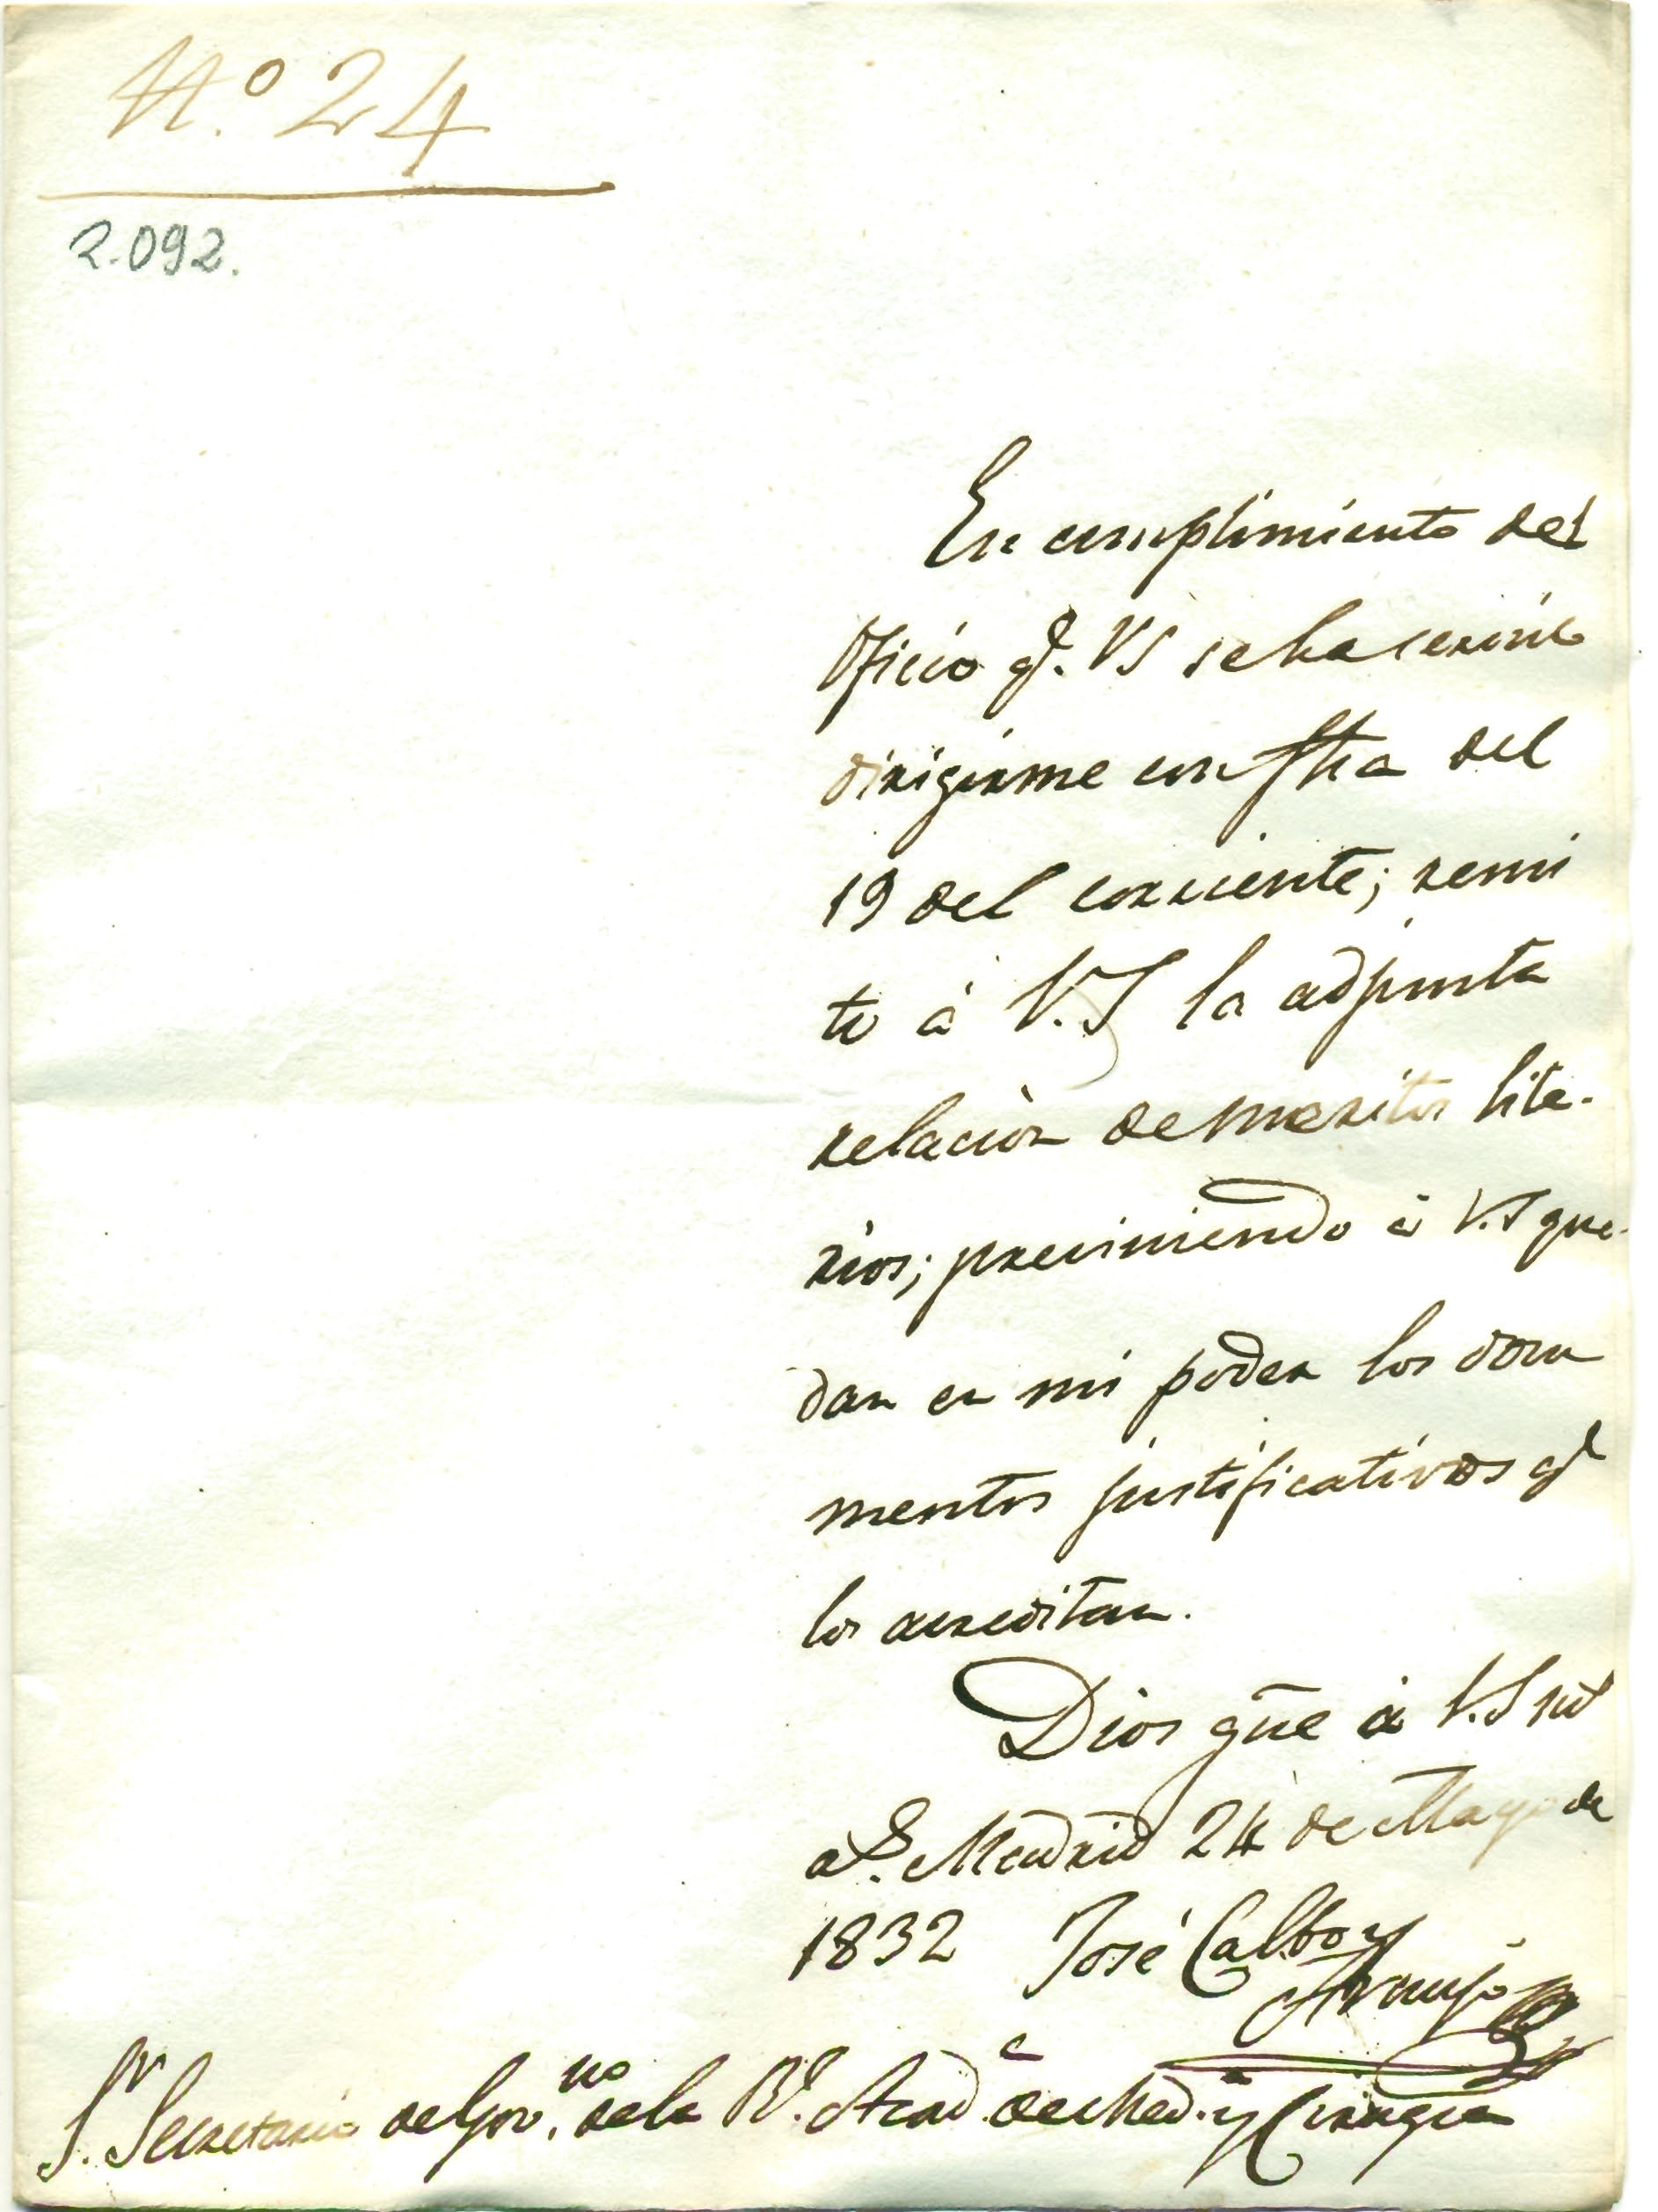 Nº. 24
2.092.
En cumplimiento del
Oficio qe. VS se ha servido
dirigirme con fha del
19 del corriente; remi
to à V.S la adjunta
relaciòn de meritos lite-
rios; previniendo à V.S que-
dan en mi poder los docu
mentos justificativos qe
los acreditan.
Dios gũe à V.S ms
as. Madrid 24 de Mayo de
1832 José Calbo y
Araujo
Sr. Secretario de Govno. de la Rl. Acada. de Meda. y Cirugia